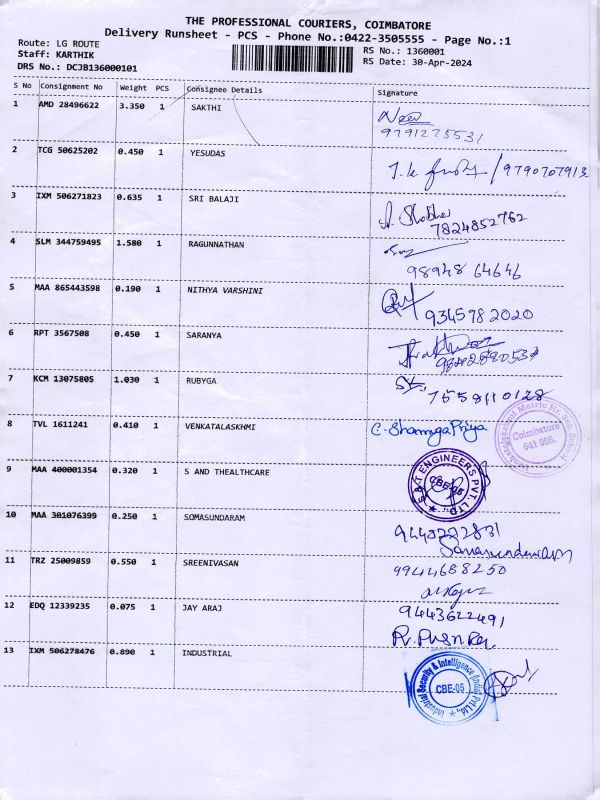 THE PROFESSIONAL COURIERS, COIMBATORE
Delivery Runsheet - PCS - Phone No.:0422-3505555 - Page No.:1
Route: LG ROUTE
Staff: KARTHIK
DRS No.: DCJB136000101
RS No.: 1360001
RS Date: 30-Apr-2024
S No Consignment No Weight PCS Consignee Details Signature
1 AMD 28496622 3.350 1 SAKTHI
9791275531
2 TCG 50625202 0.450 1 YESUDAS
/9790707913
3 IXM 506271823 0.635 1 SRI BALAJI
7824852762
4 SLM 344759495 1.580 1 RAGUNNATHAN
98948 64646
5 MAA 865443598 0.190 1 NITHYA VARSHINI
9345782020
6 RPT 3567508 0.450 1 SARANYA
7 KCM 13075805 1.030 1 RUBYGA
7559110128
8 TVL 1611241 0.410 1 VENKATALASKHMI C. Shanmuga Priya
Coimbatore
641 005.
9 MAA 400001354 0.320 1 S AND THEALTHCARE
ENGINEERS PVT. LTD.
CBE-05
10 MAA 301076399 0.250 1 SOMASUNDARAM
11 TRZ 25009859 0.550 1 SREENIVASAN
9944688250
12 EDQ 12339235 0.075 1 JAY ARAJ
9443622491
13 IXM 506278476 0.890 1 INDUSTRIAL
Industrial Security & Intelligence (India) Pvt Ltd.
CBE-05